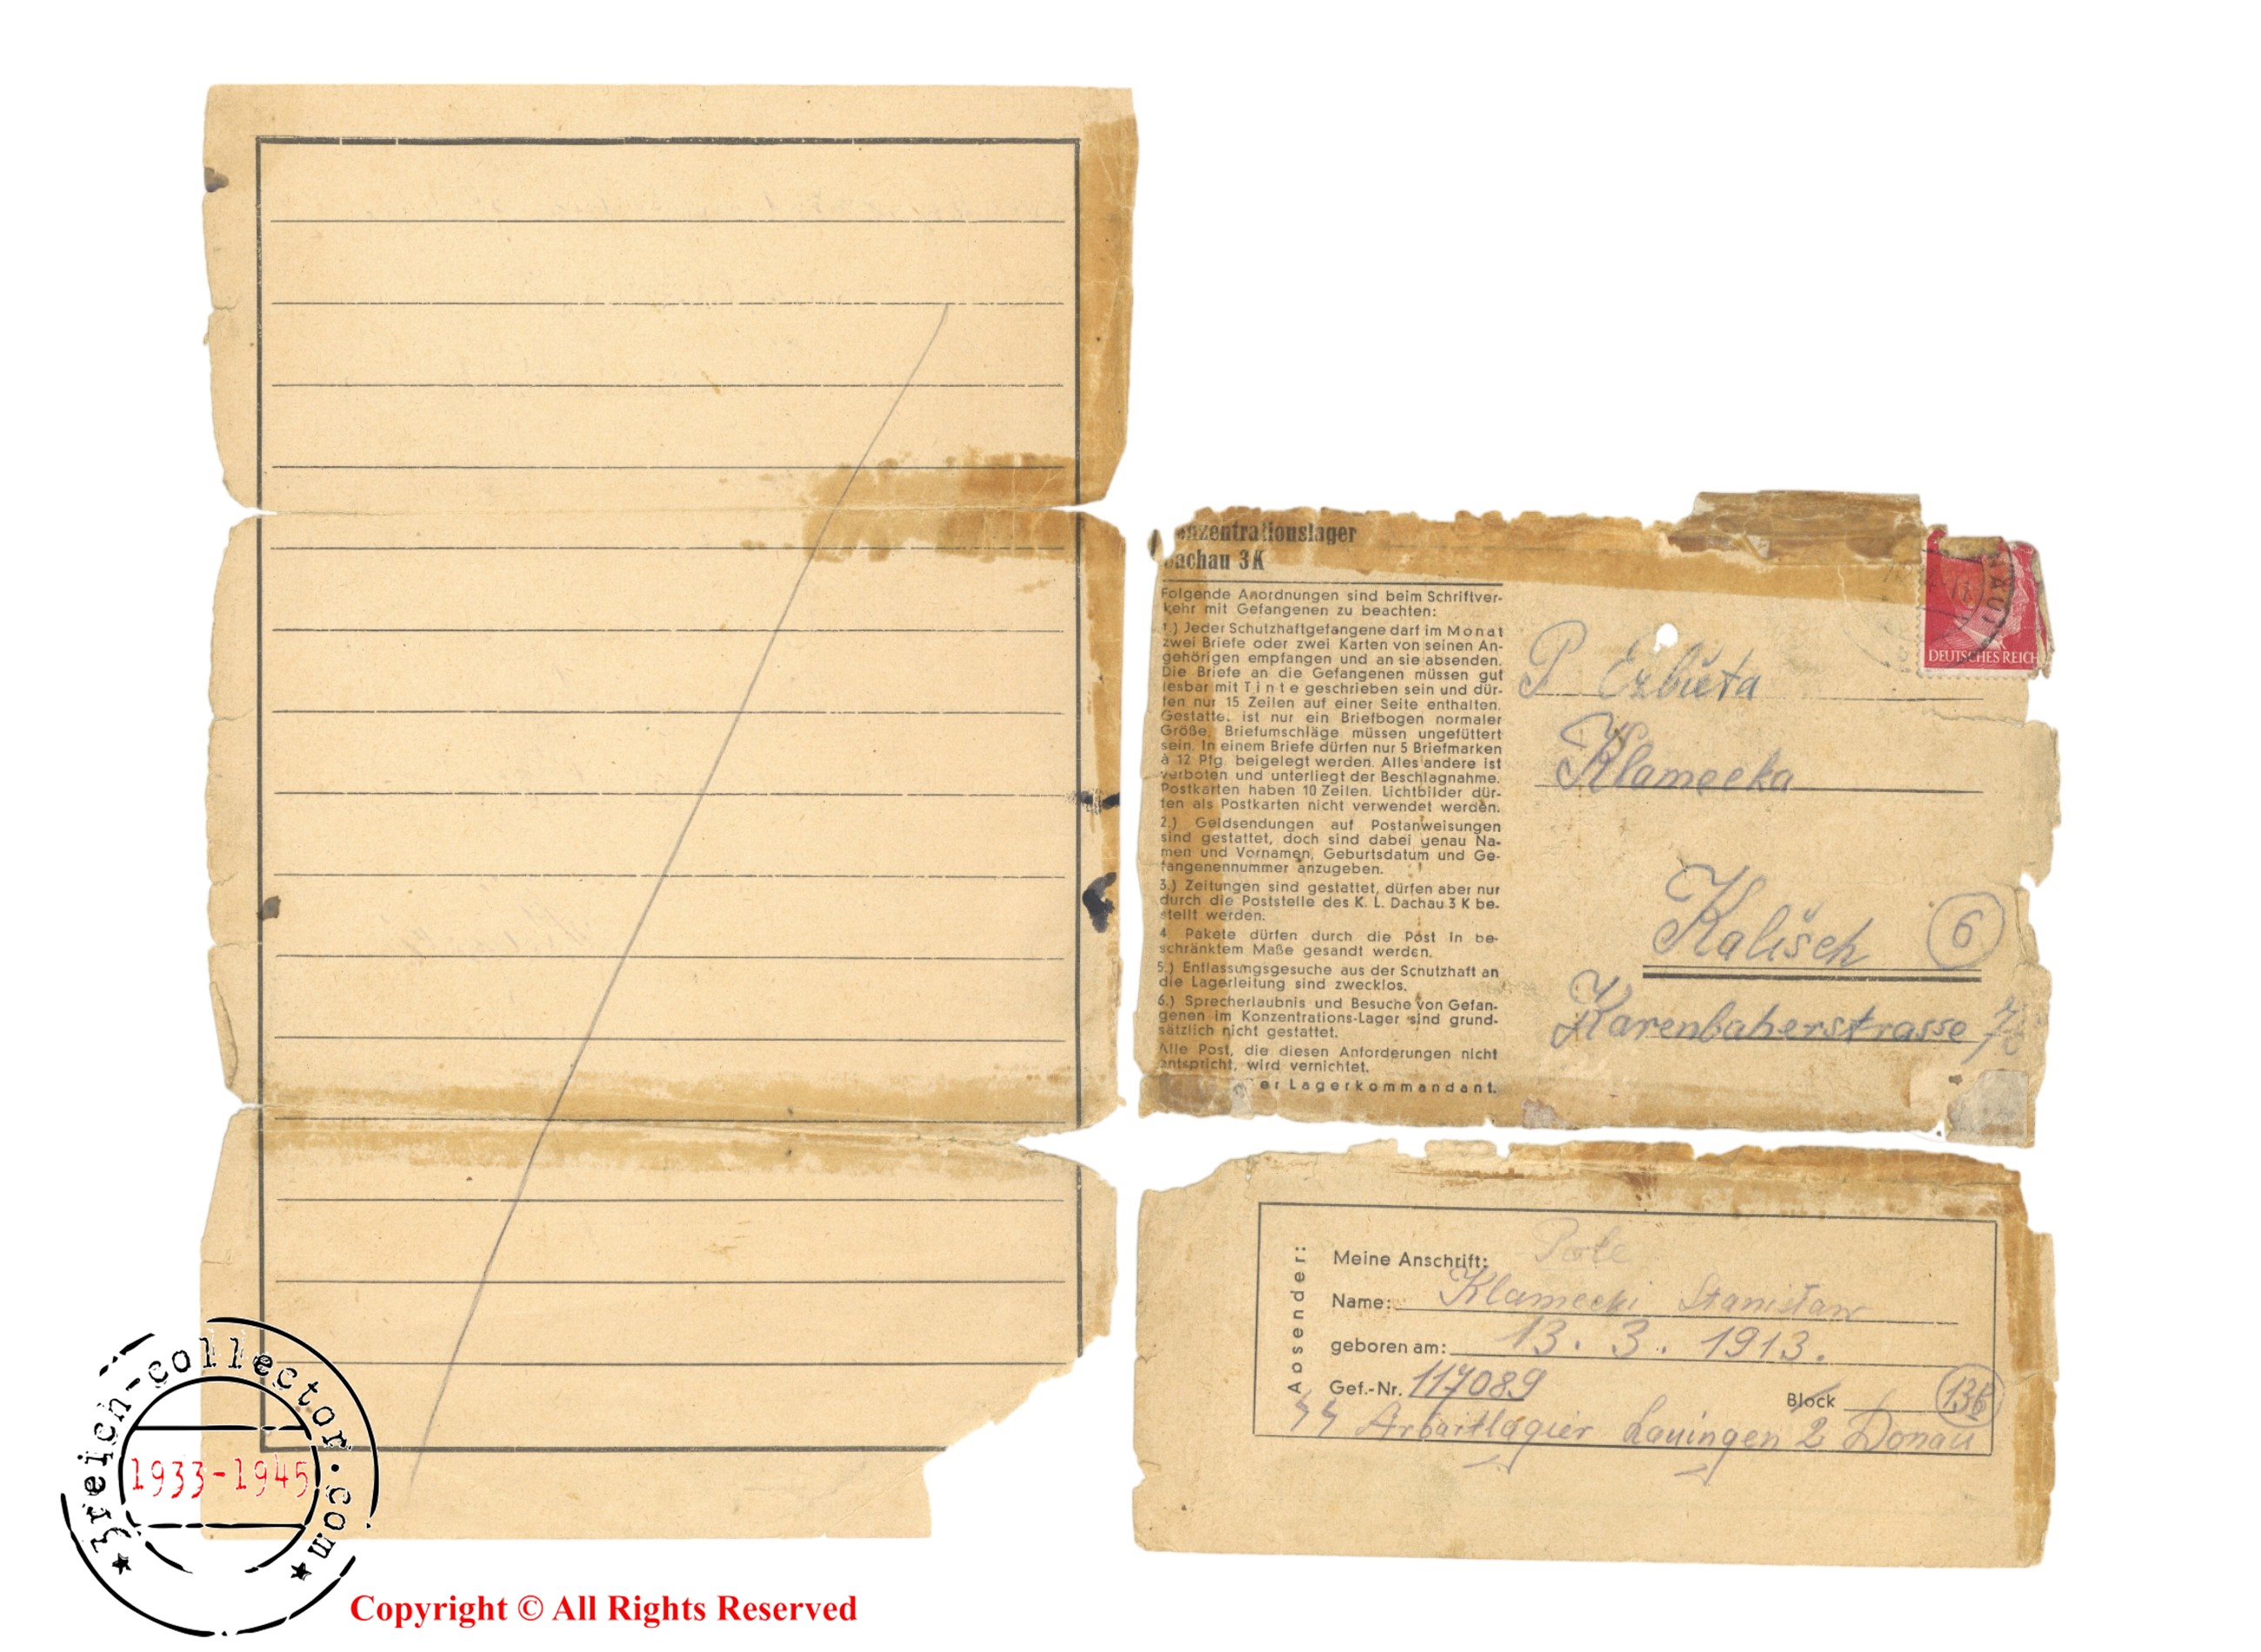 Konzentrationslager
Dachau 3 K
Folgende Anordnungen sind beim Schriftver-
kehr mit Gefangenen zu beachten:
1.) Jeder Schutzhaftgefangene darf im Monat
zwei Briefe oder zwei Karten von seinen An-
gehörigen empfangen und an sie absenden.
Die Briefe an die Gefangenen müssen gut
lesbar mit Tinte geschrieben sein und dür-
fen nur 15 Zeilen auf einer Seite enthalten.
Gestattet ist nur ein Briefbogen normaler
Größe. Briefumschläge müssen ungefüttert
sein. In einem Briefe dürfen nur 5 Briefmarken
à 12 Pfg. beigelegt werden. Alles andere ist
verboten und unterliegt der Beschlagnahme.
Postkarten haben 10 Zeilen. Lichtbilder dür-
fen als Postkarten nicht verwendet werden.
2.) Geldsendungen auf Postanweisungen
sind gestattet, doch sind dabei genau Na-
men und Vornamen, Geburtsdatum und Ge-
fangenennummer anzugeben.
3.) Zeitungen sind gestattet, dürfen aber nur
durch die Poststelle des K. L. Dachau 3 K be-
stellt werden.
4. Pakete dürfen durch die Post in be-
schränktem Maße gesandt werden.
5.) Entlassungsgesuche aus der Schutzhaft an
die Lagerleitung sind zwecklos.
6.) Sprecherlaubnis und Besuche von Gefan-
genen im Konzentrations-Lager sind grund-
sätzlich nicht gestattet.
Alle Post, die diesen Anforderungen nicht
entspricht, wird vernichtet.
er Lagerkommandant.
DEUTSCHES REICH
P Ezbieta
Klamecka
Kalisch 6
Karenbaherstrasse 7
Absender:
Meine Anschrift: Pole
Name: Klamecki Stanisław
geboren am: 13. 3. 1913.
Gef.-Nr. 117089 Block 13b
SS Arbaitlagier Lauingen 2 Donau
3reich-collector.com
1933-1945
Copyright © All Rights Reserved